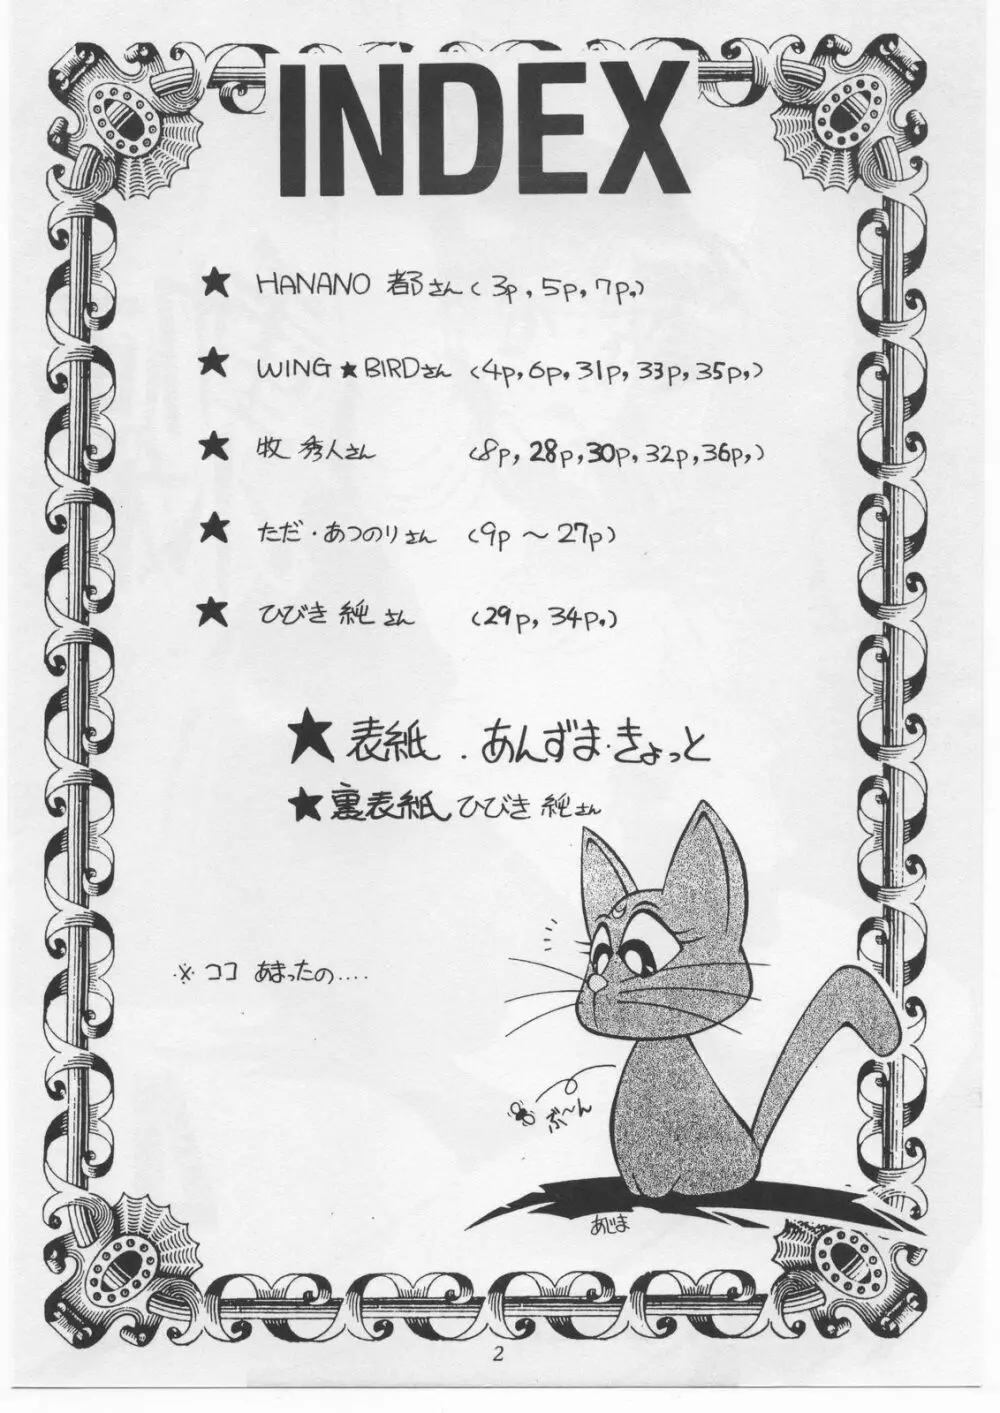 INDEX
★ HANANO 都さん (3p, 5p, 7p.)
★ WING★BIRDさん (4p, 6p, 31p, 33p, 35p,)
★ 牧 秀人さん (8p, 28p, 30p, 32p, 36p,)
★ ただ・あつのりさん (9p 〜 27p)
★ ひびき 純さん (29p, 34p.)
★ 表紙 . あんずま・きょっと
★ 裏表紙 ひびき 純さん
※ ココ あまったの....
ぶ〜ん
あじま
2